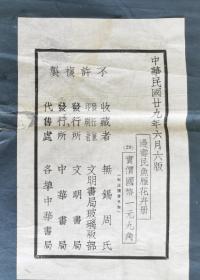 中華民國廿九年六月六版
邊壽民魚雁花卉册
(29) 實價國幣一元九角
不許複製
收藏者 無錫周氏
印刷者 文明書局玻璃版部
發行所 文明書局
發行所 中華書局
代售處 各埠中華書局